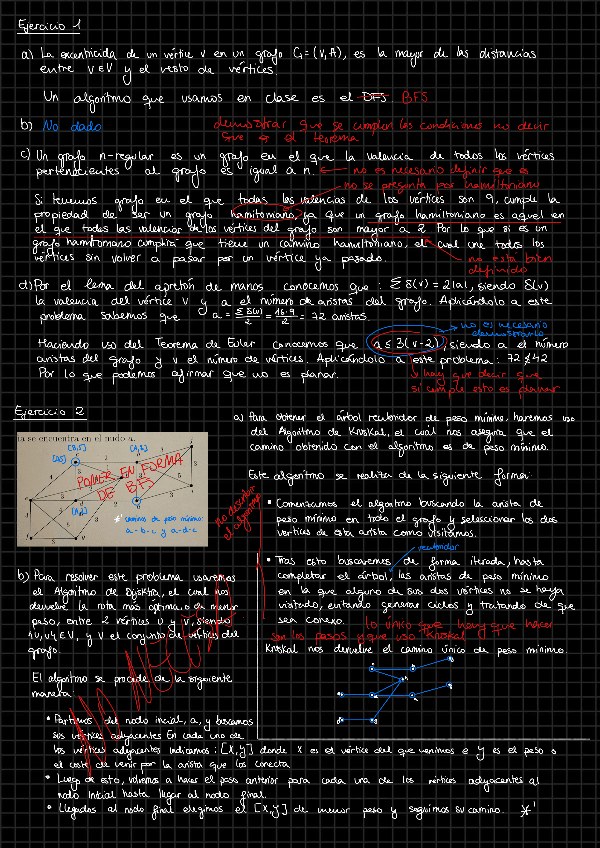 Ejercicio 1
a) La excentricida de un vértice v en un grafo G=(V,A), es la mayor de las distancias
entre v∈V y el resto de vértices.
Un algoritmo que usamos en clase es el DFS BFS
b) No dado
demostrar que se cumplen las condiciones no decir
que es el teorema
c) Un grafo n-regular es un grafo en el que la valencia de todos los vértices
pertenecientes al grafo es igual a n. ← no es necesario definir que es
no se pregunta por hamiltoniano
Si tenemos grafo en el que todas las valencias de los vértices son 9, cumple la
propiedad de ser un grafo hamiltoniano, ya que un grafo hamiltoniano es aquel en
el que todas las valencias de los vértices del grafo son mayor a 2. Por lo que si es un
grafo hamiltoniano cumplirá que tiene un camino hamiltoniano, el cual une todos los
vértices sin volver a pasar por un vértice ya pasado.
no está bien
definido
d) Por el lema del apretón de manos conocemos que: Σ δ(v) = 2|a|, siendo δ(v)
la valencia del vértice v y a el número de aristas del grafo. Aplicándolo a este
problema sabemos que a = Σ δ(v)/2 = 16·9/2 = 72 aristas.
no es necesario
demostrarlo
Haciendo uso del Teorema de Euler conocemos que a ≤ 3(v-2), siendo a el número
aristas del grafo y v el número de vértices. Aplicándolo a este problema: 72 ≰ 42
Por lo que podemos afirmar que no es planar.
hay que decir que
si cumple esto es planar
Ejercicio 2
ia se encuentra en el nudo a.
[B,5]
[A,3]
PONER EN FORMA
DE BFS
[A,2]
*¹ caminos de peso mínimo:
a-b-c y a-d-c
a) Para obtener el árbol recubridor de peso mínimo, haremos uso
del Algoritmo de Kruskal, el cual nos asegura que el
camino obtenido con el algoritmo es de peso mínimo.
Este algoritmo se realiza de la siguiente forma:
no describir
el algoritmo
• Comenzamos el algoritmo buscando la arista de
peso mínimo en todo el grafo y seleccionar los dos
vértices de esta arista como visitamos.
recubridor
• Tras esto buscaremos de forma iterada, hasta
completar el árbol, las aristas de peso mínimo
en la que alguno de sus dos vértices no se haya
visitado, evitando generar ciclos y tratando de que
sea conexo.
lo único que hay que hacer
son los pasos y que uso Kruskal
Kruskal nos devuelve el camino único de peso mínimo.
b) Para resolver este problema usaremos
el Algoritmo de Dijsktra, el cual nos
devuelve la ruta más óptima o de menor
peso, entre 2 vértices u y v, siendo
u,v∈V, y V el conjunto de vértices del
grafo.
El algoritmo se procede de la siguiente
manera:
• Partimos del nodo incial, a, y buscamos
sus vértices adyacentes. En cada uno de
los vértices adyacentes indicamos: [X,Y] donde X es el vértice del que venimos e Y es el peso o
el coste de venir por la arista que los conecta.
• Luego de esto, volvemos a hacer el paso anterior para cada una de los vértices adyacentes al
nodo inicial hasta llegar al nodo final.
• Llegados al nodo final elegimos el [X,Y] de menor peso y seguimos su camino. *¹